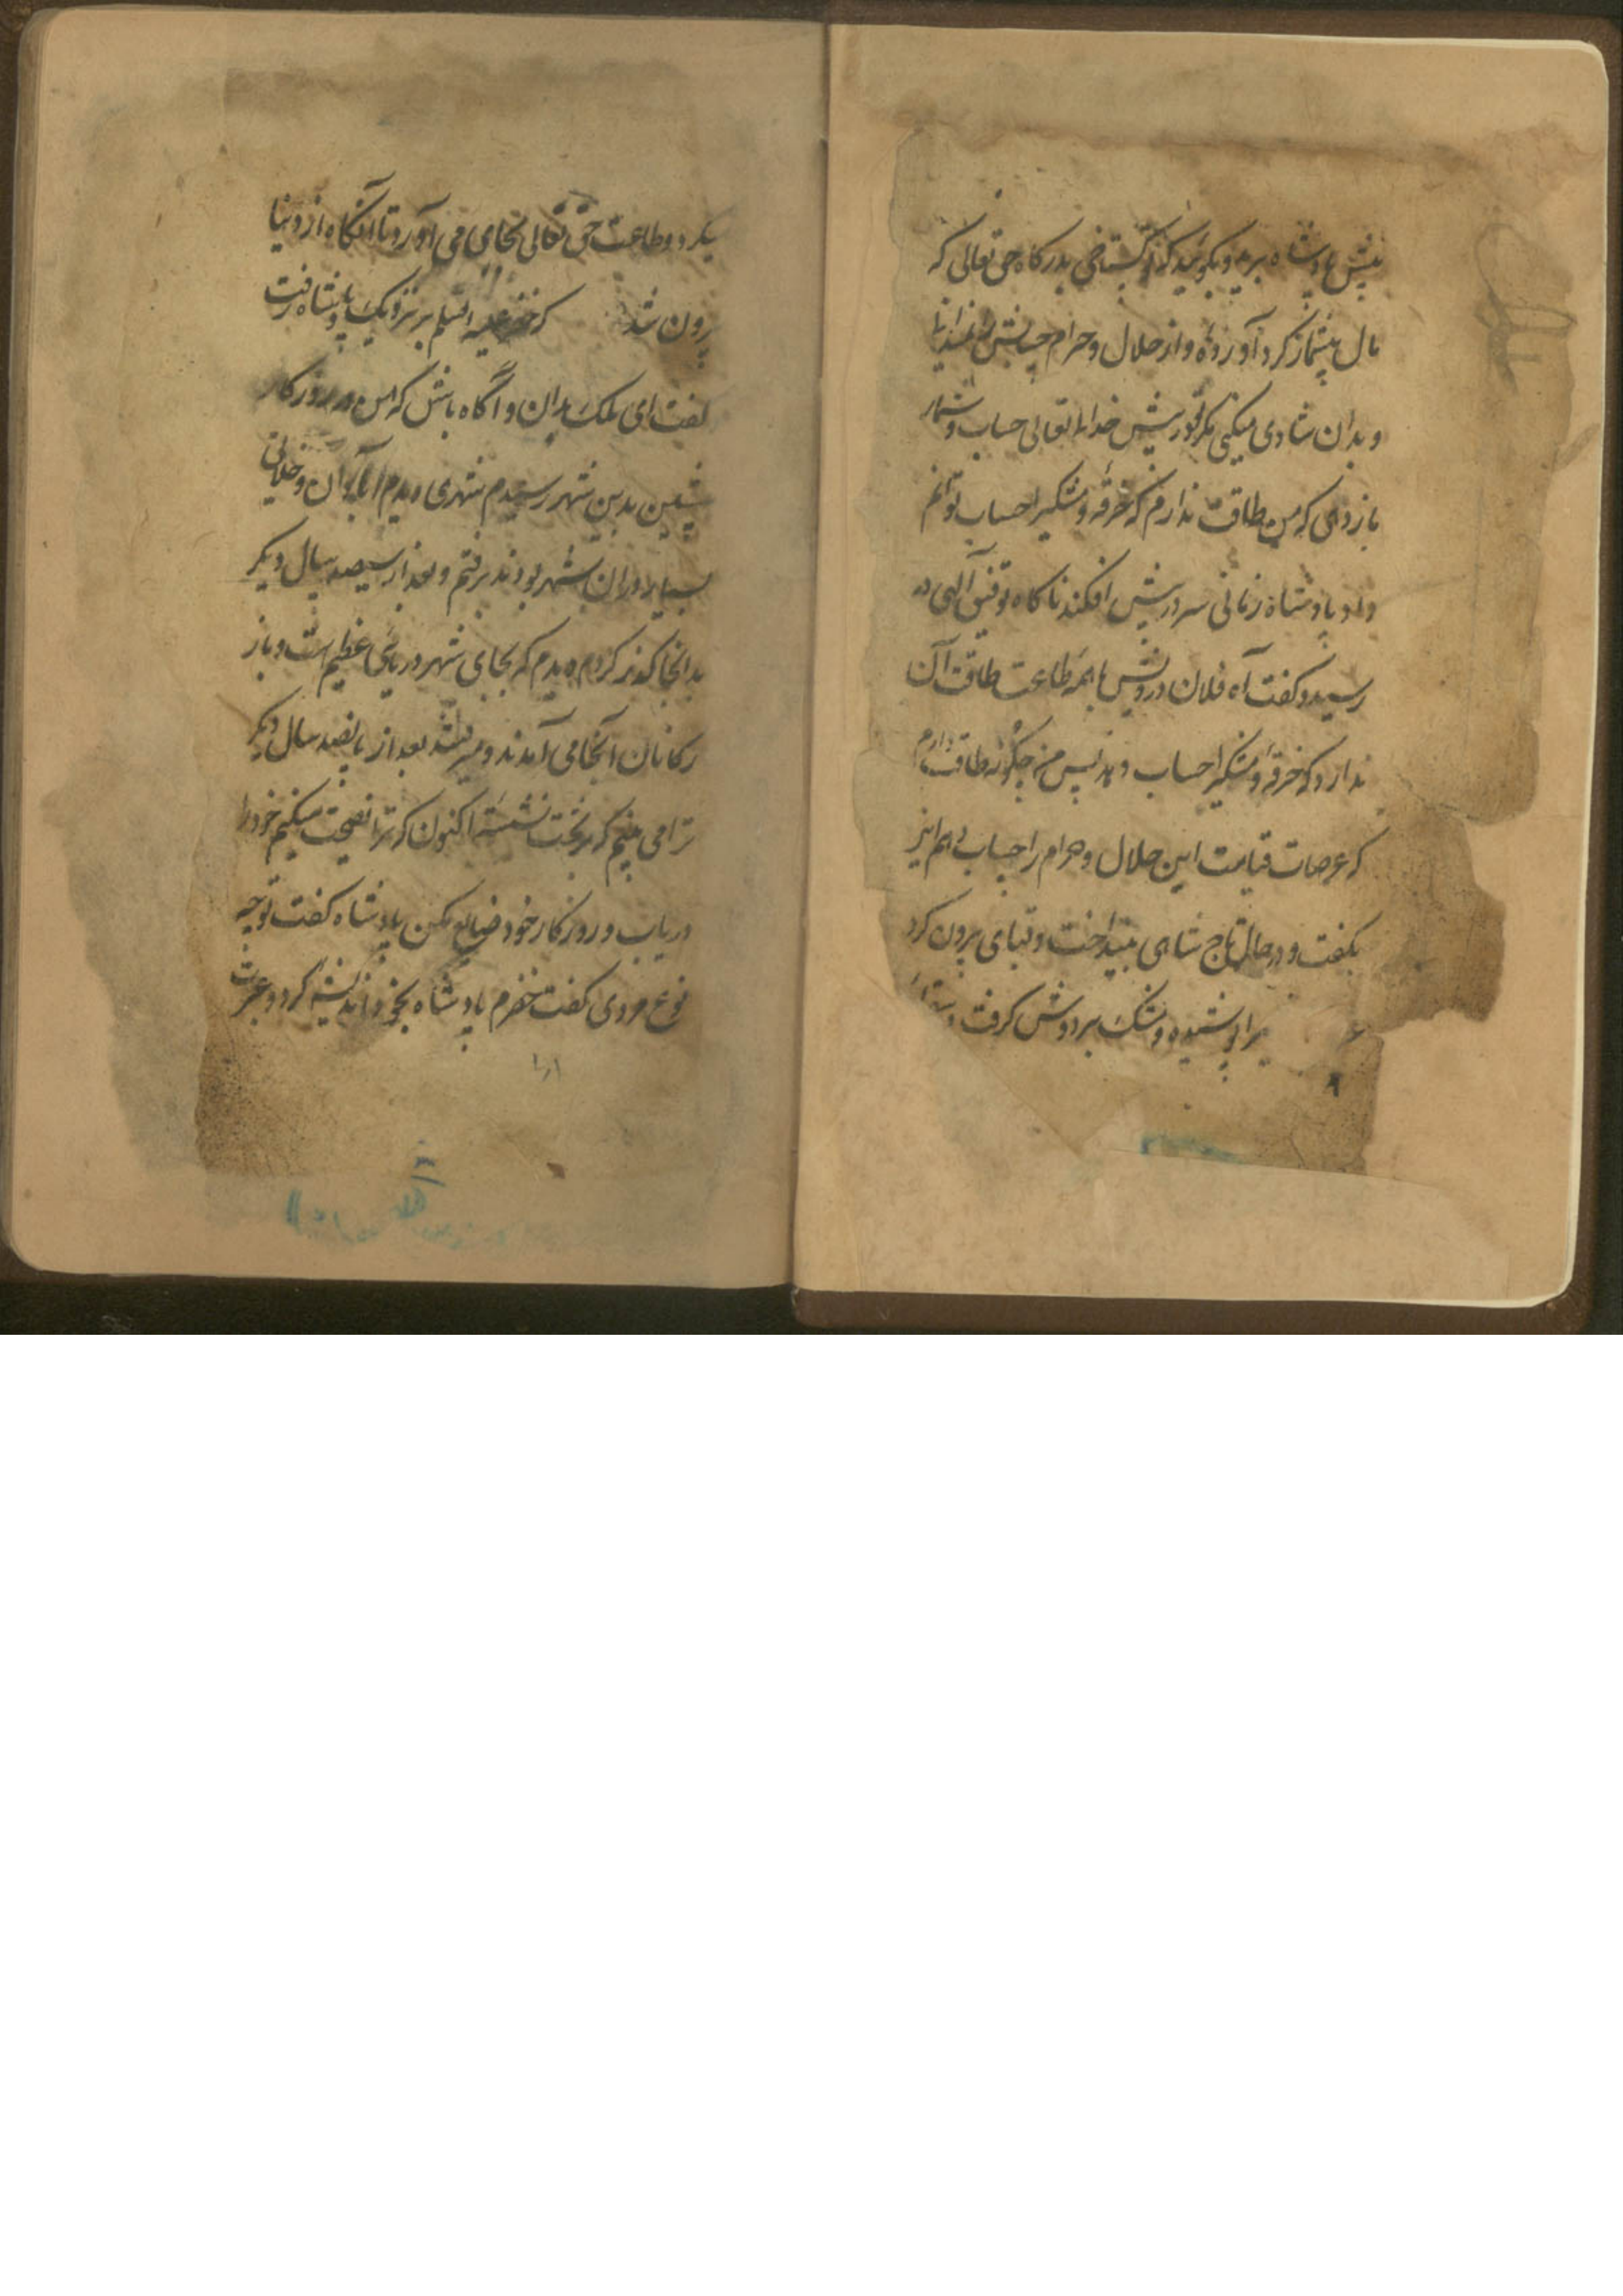 پیش پادشاه برید و بکوئید که از کستاخی بدرکاه حق تعالی که
مال بیشمار کرد آورده و از حلال و حرام
و بدان شادی میکنی مکر تو پیش خدای تعالی حساب و شمار
باز دهی که من طاقت ندارم که خرقه و مشکی را حساب توانم
داد پادشاه زمانی سر در پیش افکند ناکاه توفیق الهی در
رسید و کفت آه فلان درویش با همه طاعت طاقت آن
ندارد که خرقه و مشکی را حساب دهد پس من چکونه طاقت دارم
که عرصات قیامت این حلال و حرام را حساب دهم این
بکفت و در حال تاج شاهی بینداخت و قبای بیرون کرد
پوشیده و مشک بر دوش کرفت
میکرد و طاعت حق تعالی بجای می آورد تا آنکاه از دنیا
بیرون شد که خضر علیه السلم بر نزدیک پادشاه رفت
کفت ای ملک بدان و آگاه باش که من در روزکار
پیشین بدین شهر رسیدم شهری دیدم آبادان و خلایق
بسیار در ان شهر بودند برفتم و بعد از سیصد سال دیکر
بدانجا کذر کردم دیدم که بجای شهر دریائی عظیم است و باز
رکانان آنجا می آمدند و میرفتند بعد از پانصد سال دیکر
ترا می بینم که بر تخت نشسته اکنون که ترا نصیحت میکنم خود را
دریاب و روزکار خود ضایع مکن پادشاه کفت تو چه
نوع مردی کفت خضرم پادشاه بخود اندیشه کرد و عبرت